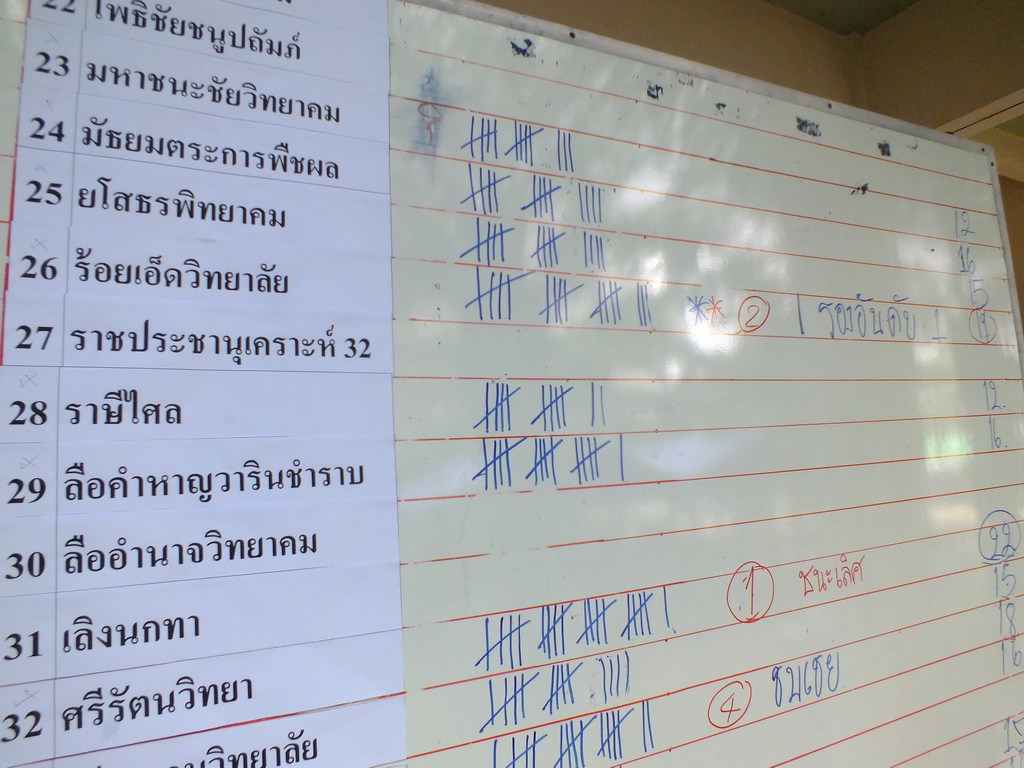 22 โพธิชัยชนูปถัมภ์
23 มหาชนะชัยวิทยาคม
24 มัธยมตระการพืชผล
12
25 ยโสธรพิทยาคม
16
26 ร้อยเอ็ดวิทยาลัย
15
27 ราชประชานุเคราะห์ 32
2 1 รองอันดับ 1
28 ราษีไศล
12.
29 ลือคำหาญวารินชำราบ
16.
30 ลืออำนาจวิทยาคม
22
31 เลิงนกทา
1 ชนะเลิศ
15
18
32 ศรีรัตนวิทยา
4 ชมเชย
16
วิทยาลัย
15